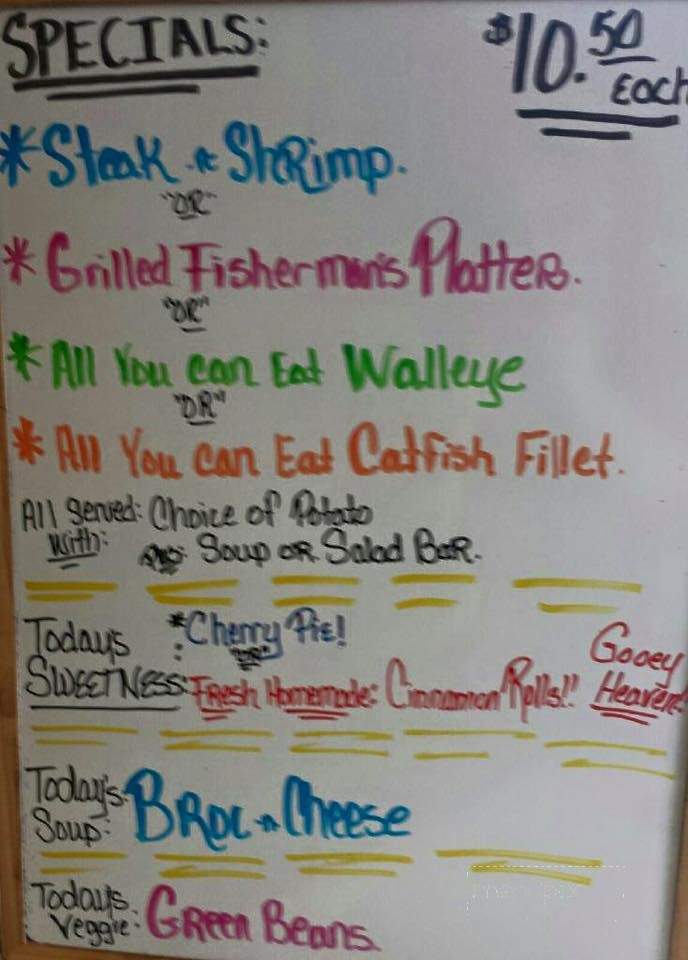 SPECIALS: $10.50 EACH
*Steak -n- Shrimp.
"OR"
*Grilled Fisherman's Platter.
"OR"
*All You can Eat Walleye
"OR"
*All You can Eat Catfish Fillet.
All Served: Choice of Potato
With: Soup OR Salad Bar.
Todays *Cherry Pie!
"OR" Gooey
SWEETNESS: Fresh Homemade: Cinnamon Rolls!! Heaven!
Today's
Soup: Broc -n- Cheese
Today's
Veggie: Green Beans.